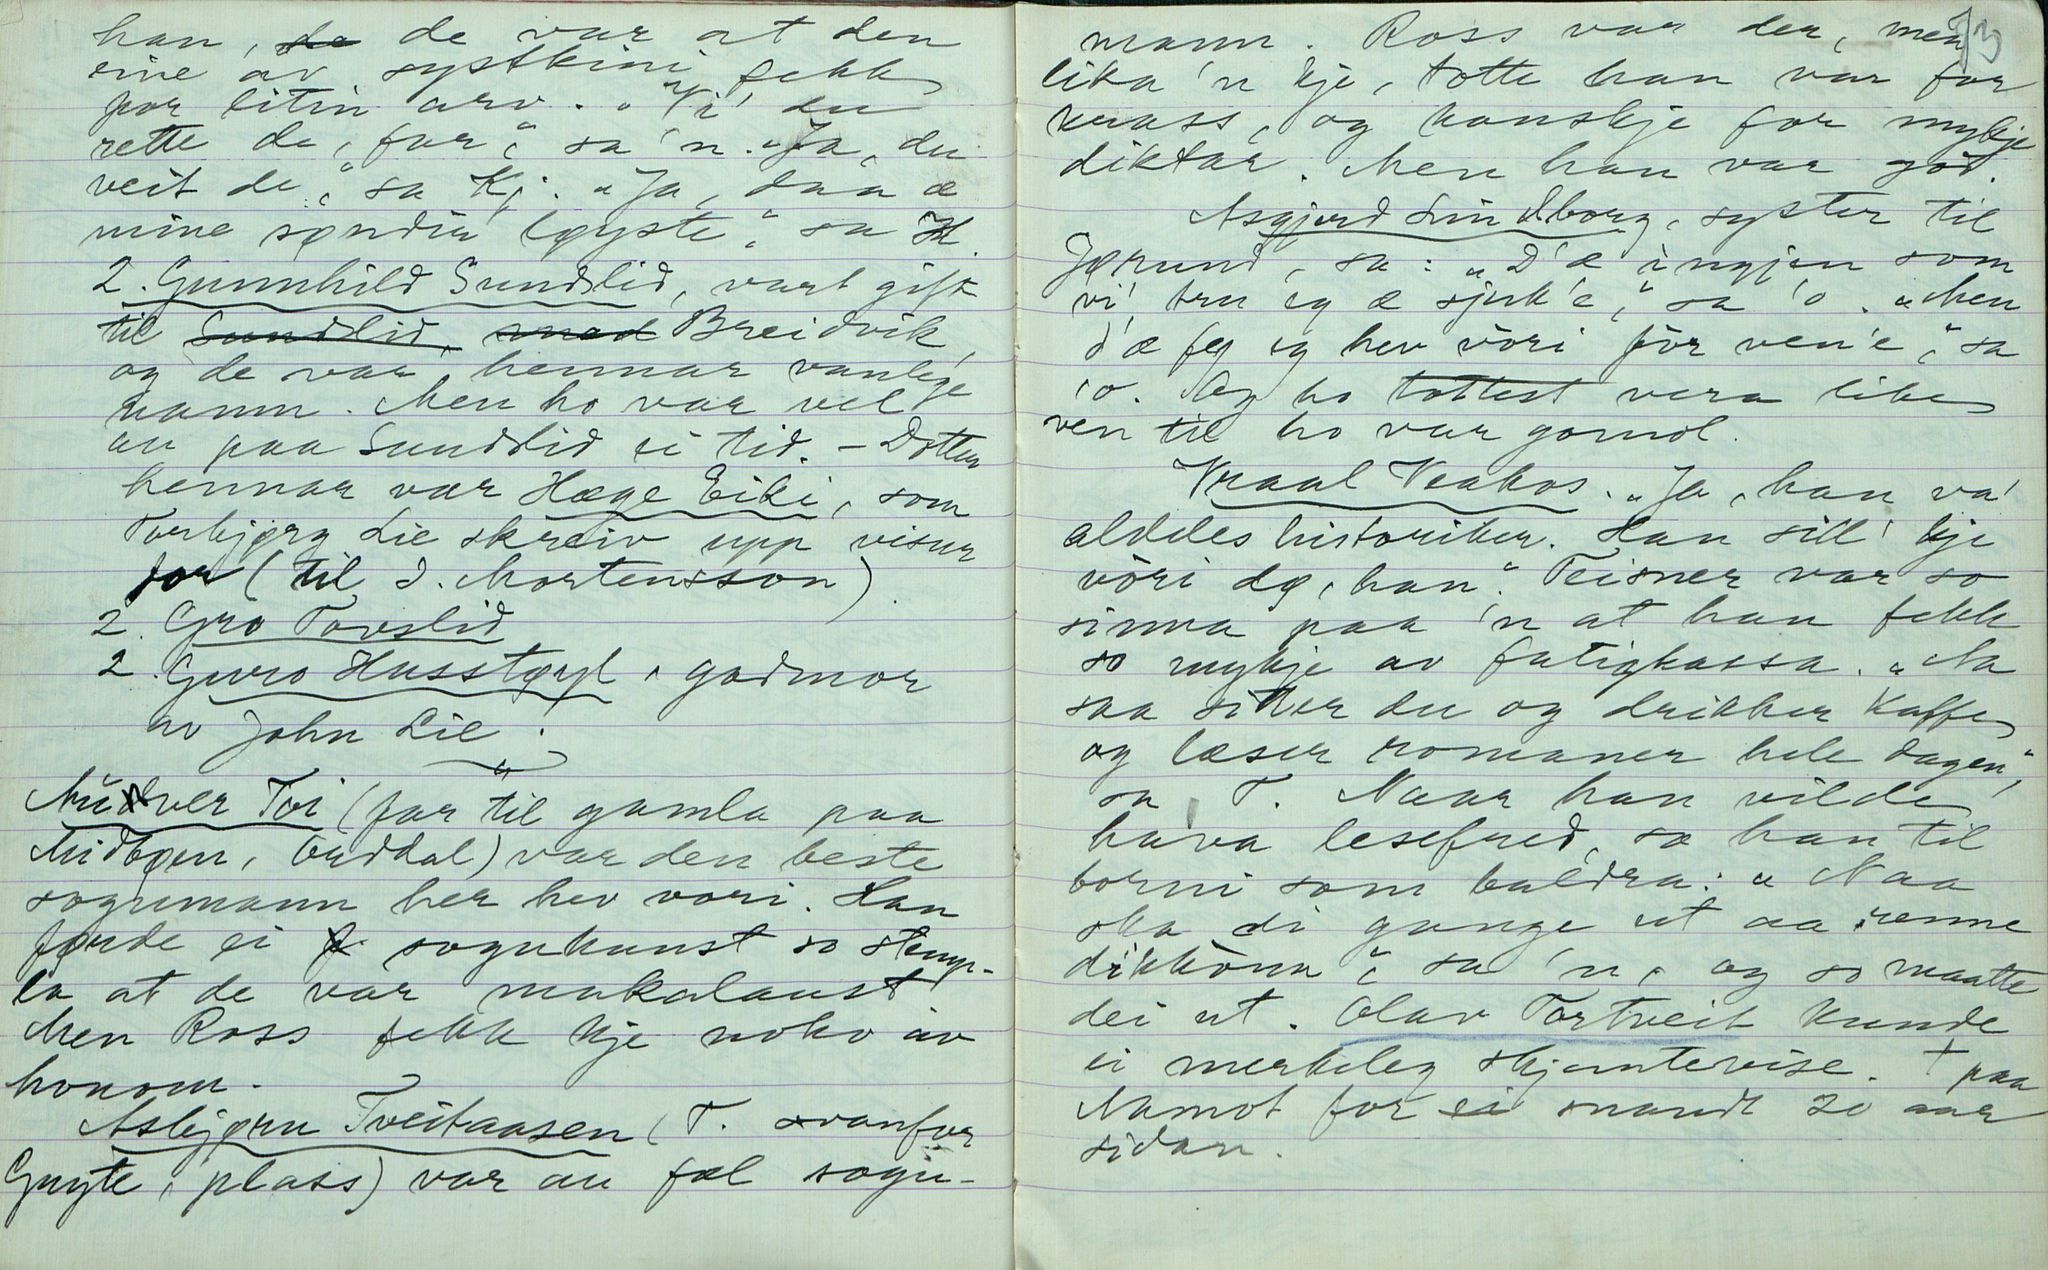 han, de de var at den
eine av systkini fekk
for litin arv. "Vi' du
rette de, far," sa 'n. "Ja, du
veit de," sa Kj. "Ja, daa æ
mine syndir løyste," sa H.
2. Gunnhild Sundslid, vart gift
til Sundslid, med Breidvik,
og de var hennar vanlege
namn. Men ho var vel
au paa Sundslid ei tid. – Dotter
hennar var Hæge Eiki, som
Torbjørg Lie skreiv upp visur
for (til I. Mortensson).
2. Gro Tovslid
2. Guro Husstøyl, godmor
av John Lie.
Nutver Tvi (far til gamla paa
Midbøen, Orddal) var den beste
sogumann her hev vori. Han
førde ei sogukunst so stemp-
la at de var makalaust
Men Ross fekk kje noko av
honom.
Asbjørn Tveitaasen (T. ovanfor
Gøyte, plass) var au fæl sogu-
73
mann. Ross var der, men
lika 'n kje, totte han var for
krass, og kanskje for mykje
diktar. Men han var god.
Asgjerd Lindborg, syster til
Jørund, sa: "D'æ ingjen som
vi', tru eg æ sjuk'e," sa 'o. "Men
d'æ fy eg hev vòri fòr ven'e," sa
'o. Og ho tottest vera like
ven til ho var gomol.
Vraal Veakos. "Ja, han va'
aldeles historiker. Han sill' kje
vòri dø, han." Teisner var so
sinna paa 'n at han fekk
so mykje av fatigkassa. "Na
saa sitter du og drikker kaffe
og læser romaner hele dagen",
sa T. Naar han vilde
hava lesefred, sa han til
borni som baldra: "Naa
ska di gange ut aa renne
dikkòna," sa 'n, og so maatte
dei ut. Olav Tortveit kunde
ei merkeleg skjemtevise. + paa
Aamot for ei snaudt 20 aar
sidan.